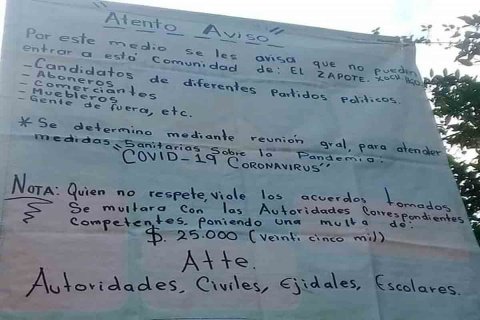 "Atento Aviso"
Por este medio se les avisa que no pueden
entrar a esta Comunidad de: EL ZAPOTE. XOCH. HGO.
- Candidatos de diferentes Partidos Politicos.
- Aboneros
- Comerciantes
- Muebleros
- Gente de fuera, etc.
* Se determino mediante reunión gral, para atender
medidas Sanitarias Sobre la Pandemia:
"COVID-19 CORONAVIRUS"
NOTA: Quien no respete, viole los acuerdos tomados
Se multara con las Autoridades Correspondientes
Competentes, poniendo una multa de:
$. 25.000 (veinti cinco mil)
Atte.
Autoridades, Civiles, Ejidales, Escolares.